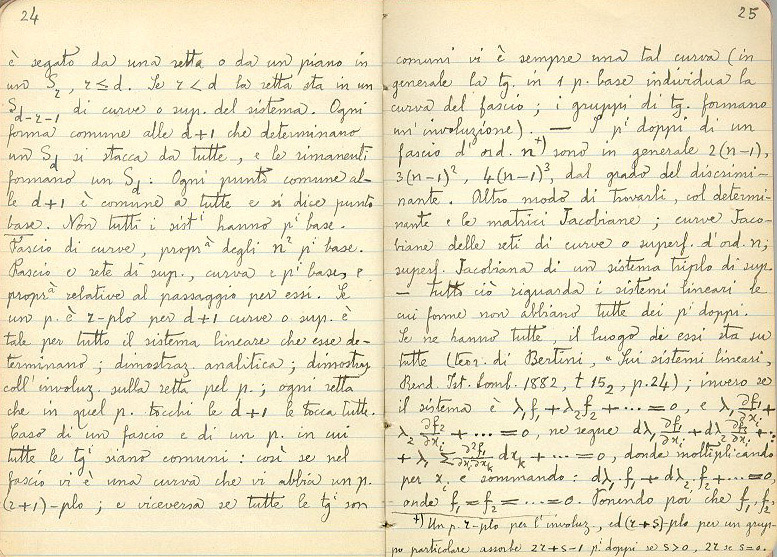 24
è segato da una retta o da un piano in
un S_r, r ≤ d. Se r < d la retta sta in un
S_{d-r-1} di curve o sup. del sistema. Ogni
forma comune alle d+1 che determinano
un S_d si stacca da tutte, e le rimanenti
formano un S_d. Ogni punto comune al-
le d+1 è comune a tutte e si dice punto
base. Non tutti i sist^i hanno p^i base.
Fascio di curve, propr^à degli n² p^i base.
Fascio e rete di sup., curva e p^i base, e
propr^à relative al passaggio per essi. Se
un p. è r-plo per d+1 curve o sup. è
tale per tutto il sistema lineare che esse de-
terminano; dimostraz. analitica; dimostraz
coll'involuz. sulla retta pel p.; ogni retta
che in quel p. tocchi le d+1 le tocca tutte.
Caso di un fascio e di un p. in cui
tutte le tg^i siano comuni: così se nel
fascio vi è una curva che vi abbia un p.
(r+1)-plo; e viceversa se tutte le tg^i son
25
comuni vi è sempre una tal curva (in
generale la tg. in 1 p. base individua la
curva del fascio; i gruppi di tg. formano
un'involuzione). — I p^i doppi di un
fascio d'ord. n^{+)} sono in generale 2(n-1),
3(n-1)², 4(n-1)³, dal grado del discrimi-
nante. Altro modo di trovarli, col determi-
nante e le matrici Jacobiane; curve Jaco-
biane delle reti di curve o superf. d'ord. n;
superf. Jacobiana di un sistema triplo di sup.
— Tutto ciò riguarda i sistemi lineari le
cui forme non abbiano tutte dei p^i doppi.
Se ne hanno tutte, il luogo di essi sta su
tutte (teor. di Bertini, "Sui sistemi lineari,
Rend. Ist. Lomb. 1882, t 15₂, p. 24); invero se
il sistema è λ₁f₁ + λ₂f₂ + ··· = 0, e λ₁ ∂f₁/∂x_i +
λ₂ ∂f₂/∂x_i + ··· = 0, ne segue dλ₁ ∂f₁/∂x_i + dλ₂ ∂f₂/∂x_i + ··
+ λ₁ Σ ∂²f₁/∂x_i∂x_k dx_k + ··· = 0, donde moltiplicando
per x_i e sommando: dλ₁.f₁ + dλ₂.f₂ + ··· = 0,
onde f₁ = f₂ = ··· = 0. Ponendo poi che f₁, f₂,
+) Un p. r-plo per l'involuz., ed (r+s)-plo per un grup-
po particolare assorbe 2r+s-1 p^i doppi se s>0, 2r se s=0.